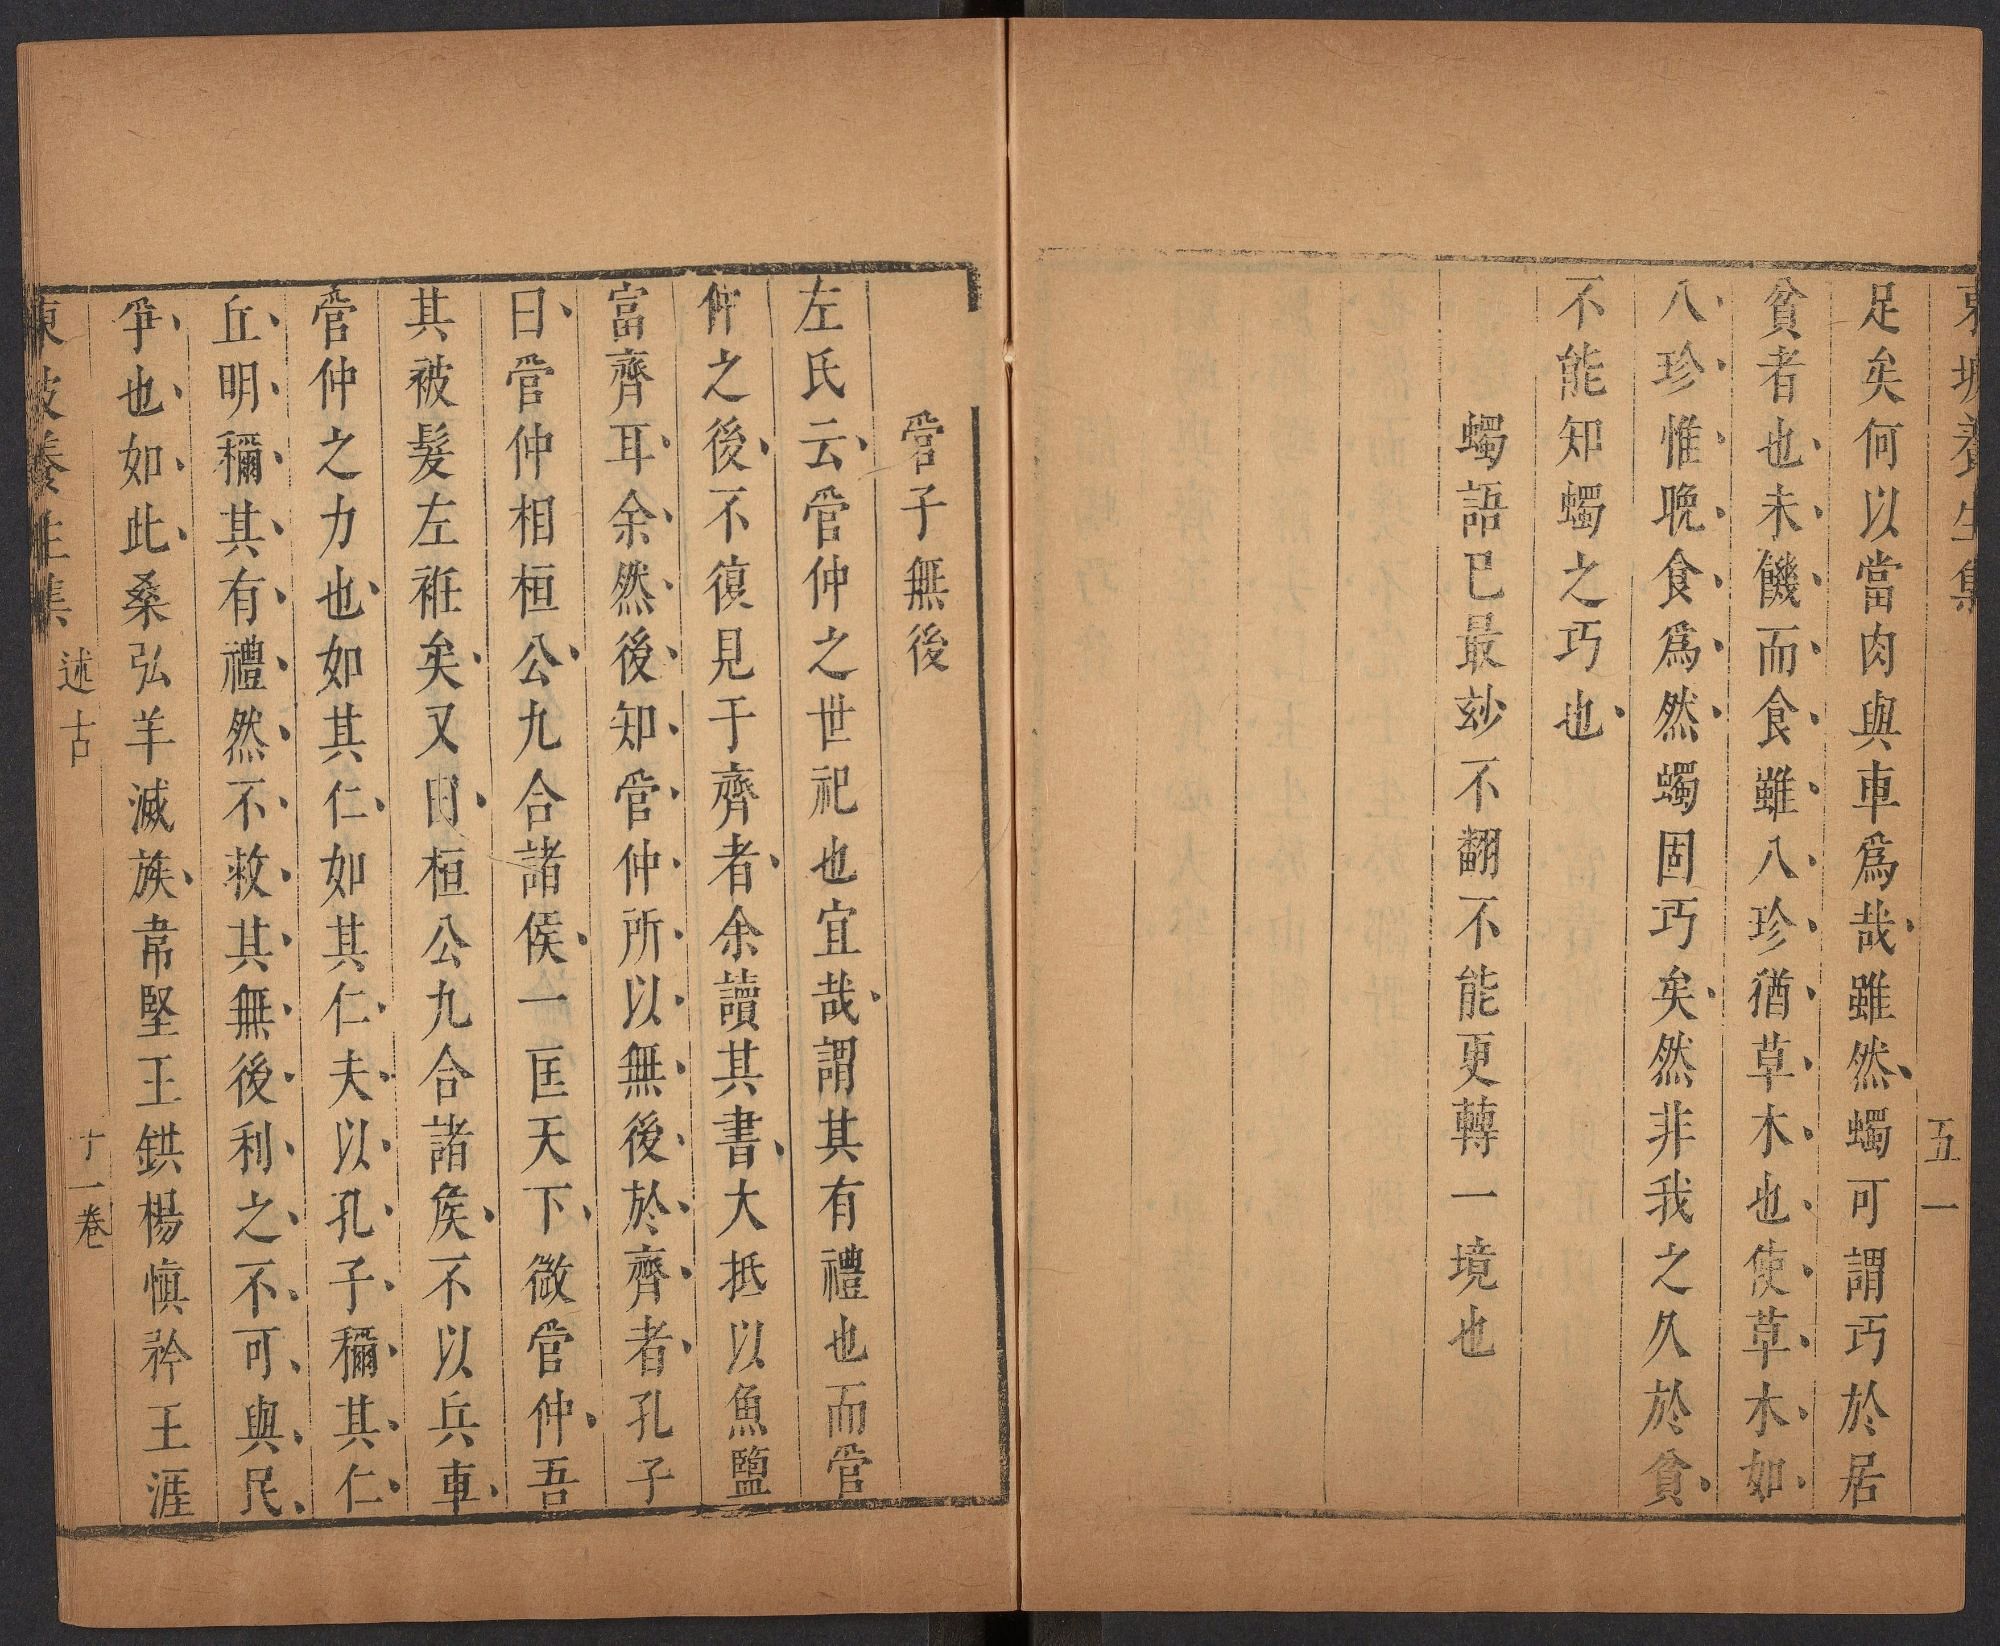 東坡養生集
五一
足矣何以當肉與車爲哉雖然蠋可謂巧於居
貧者也未饑而食雖八珍猶草木也使草木如
八珍惟晚食爲然蠋固巧矣然非我之久於貧
不能知蠋之巧也
蠋語已最玅不翻不能更轉一境也
管子無後
左氏云管仲之世祀也宜哉謂其有禮也而管
仲之後不復見于齊者余讀其書大抵以魚鹽
富齊耳余然後知管仲所以無後於齊者孔子
曰管仲相桓公九合諸侯一匡天下微管仲吾
其被髮左袵矣又曰桓公九合諸侯不以兵車
管仲之力也如其仁如其仁夫以孔子稱其仁
丘明稱其有禮然不救其無後利之不可與民
爭也如此桑弘羊滅族韋堅王鉷楊慎矜王涯
東坡養生集 述古 十一卷